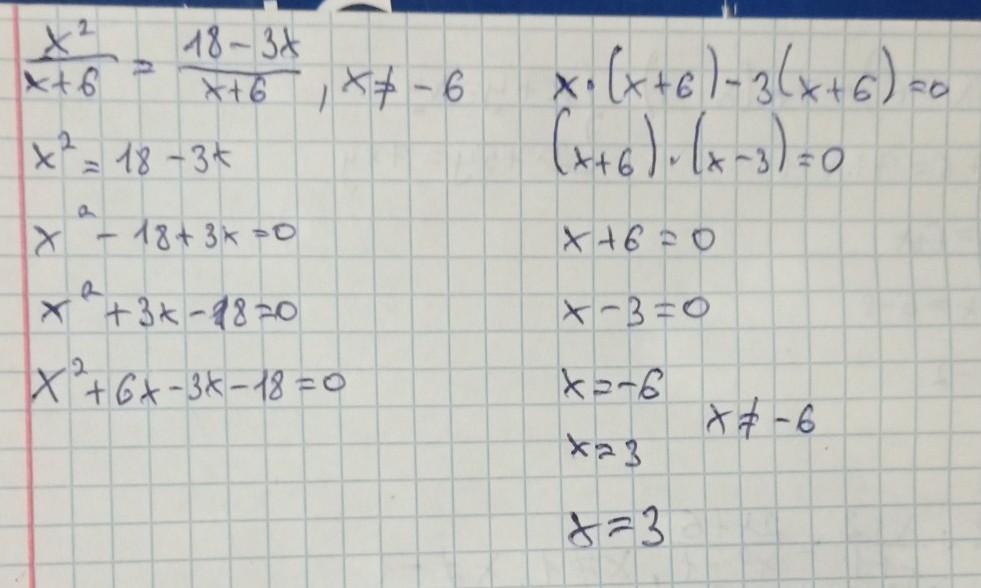 x²/(x+6) = (18-3x)/(x+6), x≠-6
x²=18-3x
x²-18+3x=0
x²+3x-18=0
x²+6x-3x-18=0
x·(x+6)-3(x+6)=0
(x+6)·(x-3)=0
x+6=0
x-3=0
x=-6
x≠-6
x=3
x=3